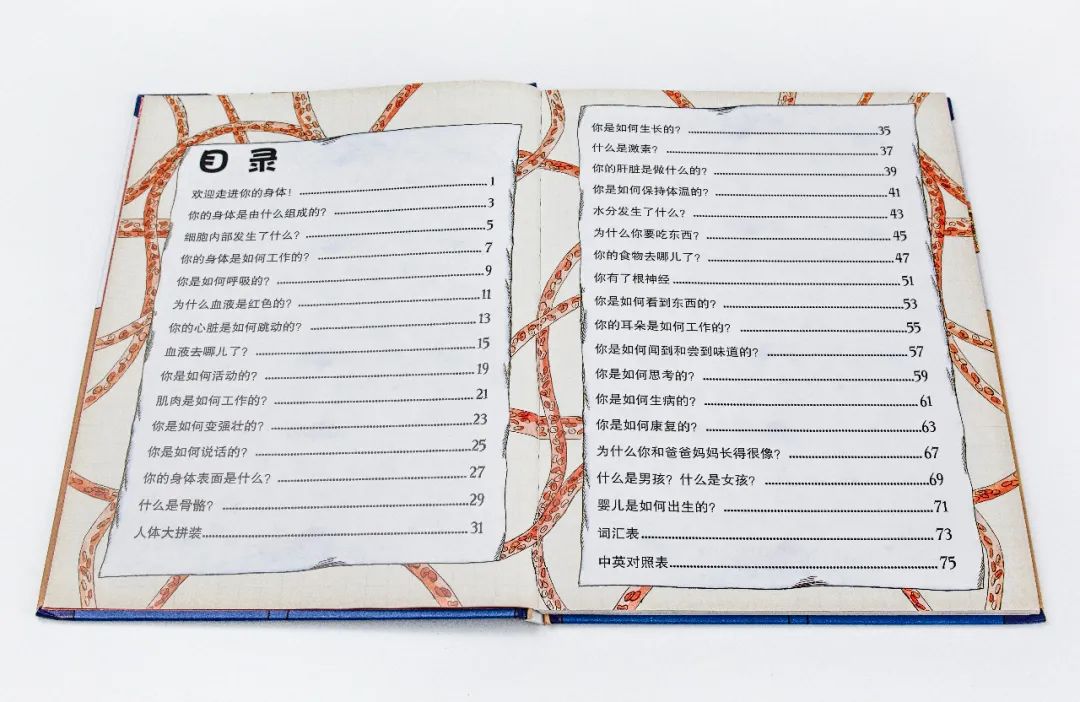 目录
欢迎走进你的身体！ 1
你的身体是由什么组成的？ 3
细胞内部发生了什么？ 5
你的身体是如何工作的？ 7
你是如何呼吸的？ 9
为什么血液是红色的？ 11
你的心脏是如何跳动的？ 13
血液去哪儿了？ 15
你是如何活动的？ 19
肌肉是如何工作的？ 21
你是如何变强壮的？ 23
你是如何说话的？ 25
你的身体表面是什么？ 27
什么是骨骼？ 29
人体大拼装 31
你是如何生长的？ 35
什么是激素？ 37
你的肝脏是做什么的？ 39
你是如何保持体温的？ 41
水分发生了什么？ 43
为什么你要吃东西？ 45
你的食物去哪儿了？ 47
你有了根神经 51
你是如何看到东西的？ 53
你的耳朵是如何工作的？ 55
你是如何闻到和尝到味道的？ 57
你是如何思考的？ 59
你是如何生病的？ 61
你是如何康复的？ 63
为什么你和爸爸妈妈长得很像？ 67
什么是男孩？什么是女孩？ 69
婴儿是如何出生的？ 71
词汇表 73
中英对照表 75